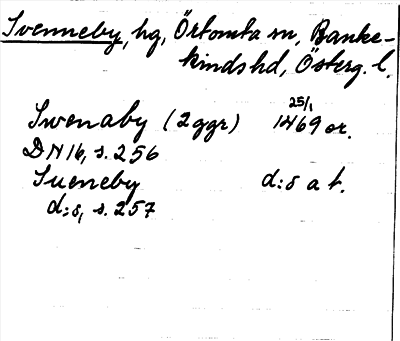 Svenneby, hg, Örtomta sn, Banke-
kinds hd, Österg. l.
25/1
Swenaby (2 ggr) 1469 or.
DN 16, s. 256
Sueneby d:o a t.
d:o, s. 257